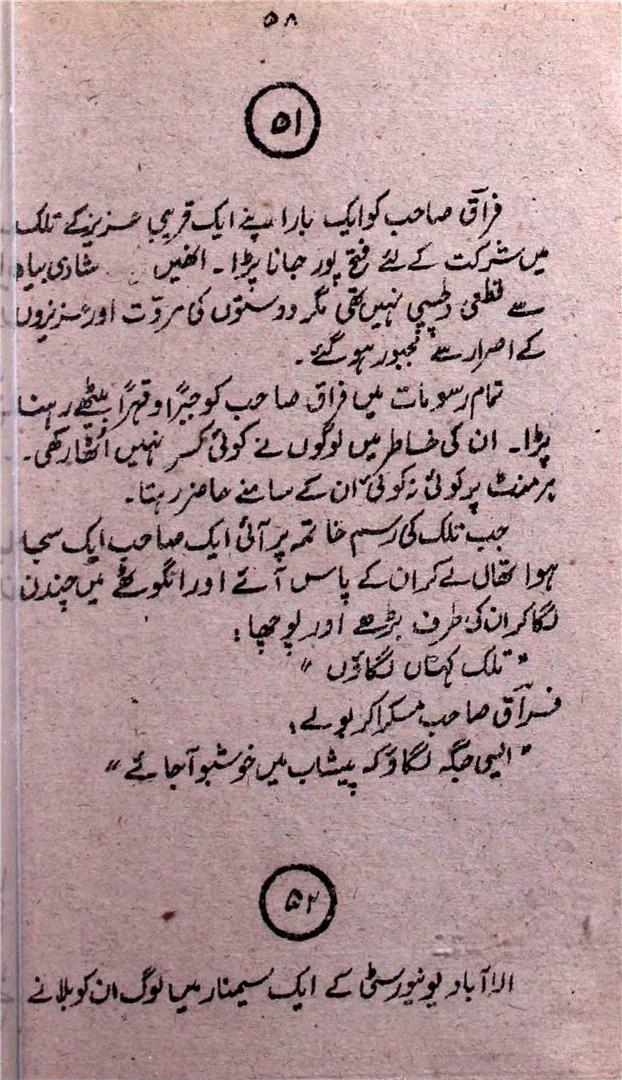 ۵۸
۵۱
فراق صاحب کو ایک بار اپنے ایک قریبی عزیز کے تلک
میں شرکت کے لئے فتح پور جانا پڑا۔ انھیں شادی بیاہ
سے قطعی دلچسپی نہیں تھی مگر دوستوں کی مروّت اور عزیزوں
کے اصرار سے مجبور ہو گئے۔
تمام رسومات میں فراق صاحب کو جبراً و قہراً بیٹھے رہنا
پڑا۔ ان کی خاطر میں لوگوں نے کوئی کسر نہیں اُٹھا رکھی۔
ہر منٹ پر کوئی نہ کوئی ان کے سامنے حاضر رہتا۔
جب تلک کی رسم خاتمہ پر آئی ایک صاحب ایک سجا
ہوا تھال لے کر ان کے پاس آئے اور انگوٹھے میں چندن
لگا کر ان کی طرف بڑھے اور پوچھا:
"تلک کہاں لگاؤں"
فراق صاحب مسکرا کر بولے:
"ایسی جگہ لگاؤ کہ پیشاب میں خوشبو آ جائے"
۵۲
الہ آباد یونیورسٹی کے ایک سیمنار میں لوگ ان کو بلانے